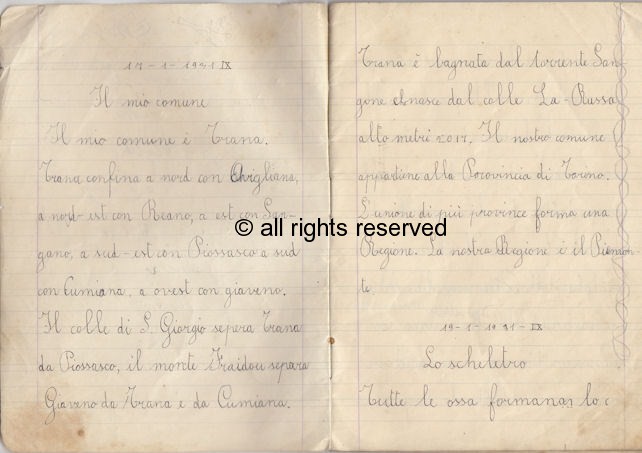 17-1-1931 IX
Il mio comune
Il mio comune è Trana.
Trana confina a nord con Avigliana,
a nord-est con Reano, a est con San-
gano, a sud-est con Piossasco a sud
con Cumiana, a ovest con giaveno.
Il colle di S. Giorgio sepera Trana
da Piossasco, il monte Fraidou separa
Giaveno da Trana e da Cumiana.
Trana è bagnata dal torrente San-
gone che nasce dal colle La-Russa
alto metri 2017. Il nostro comune
appartiene alla Porovincia di Torino.
L'unione di più province forma una
Regione. La nostra Regione è il Piemon-
te.
19-1-1931-IX
Lo scheletro
Tutte le ossa formanan lo
© all rights reserved